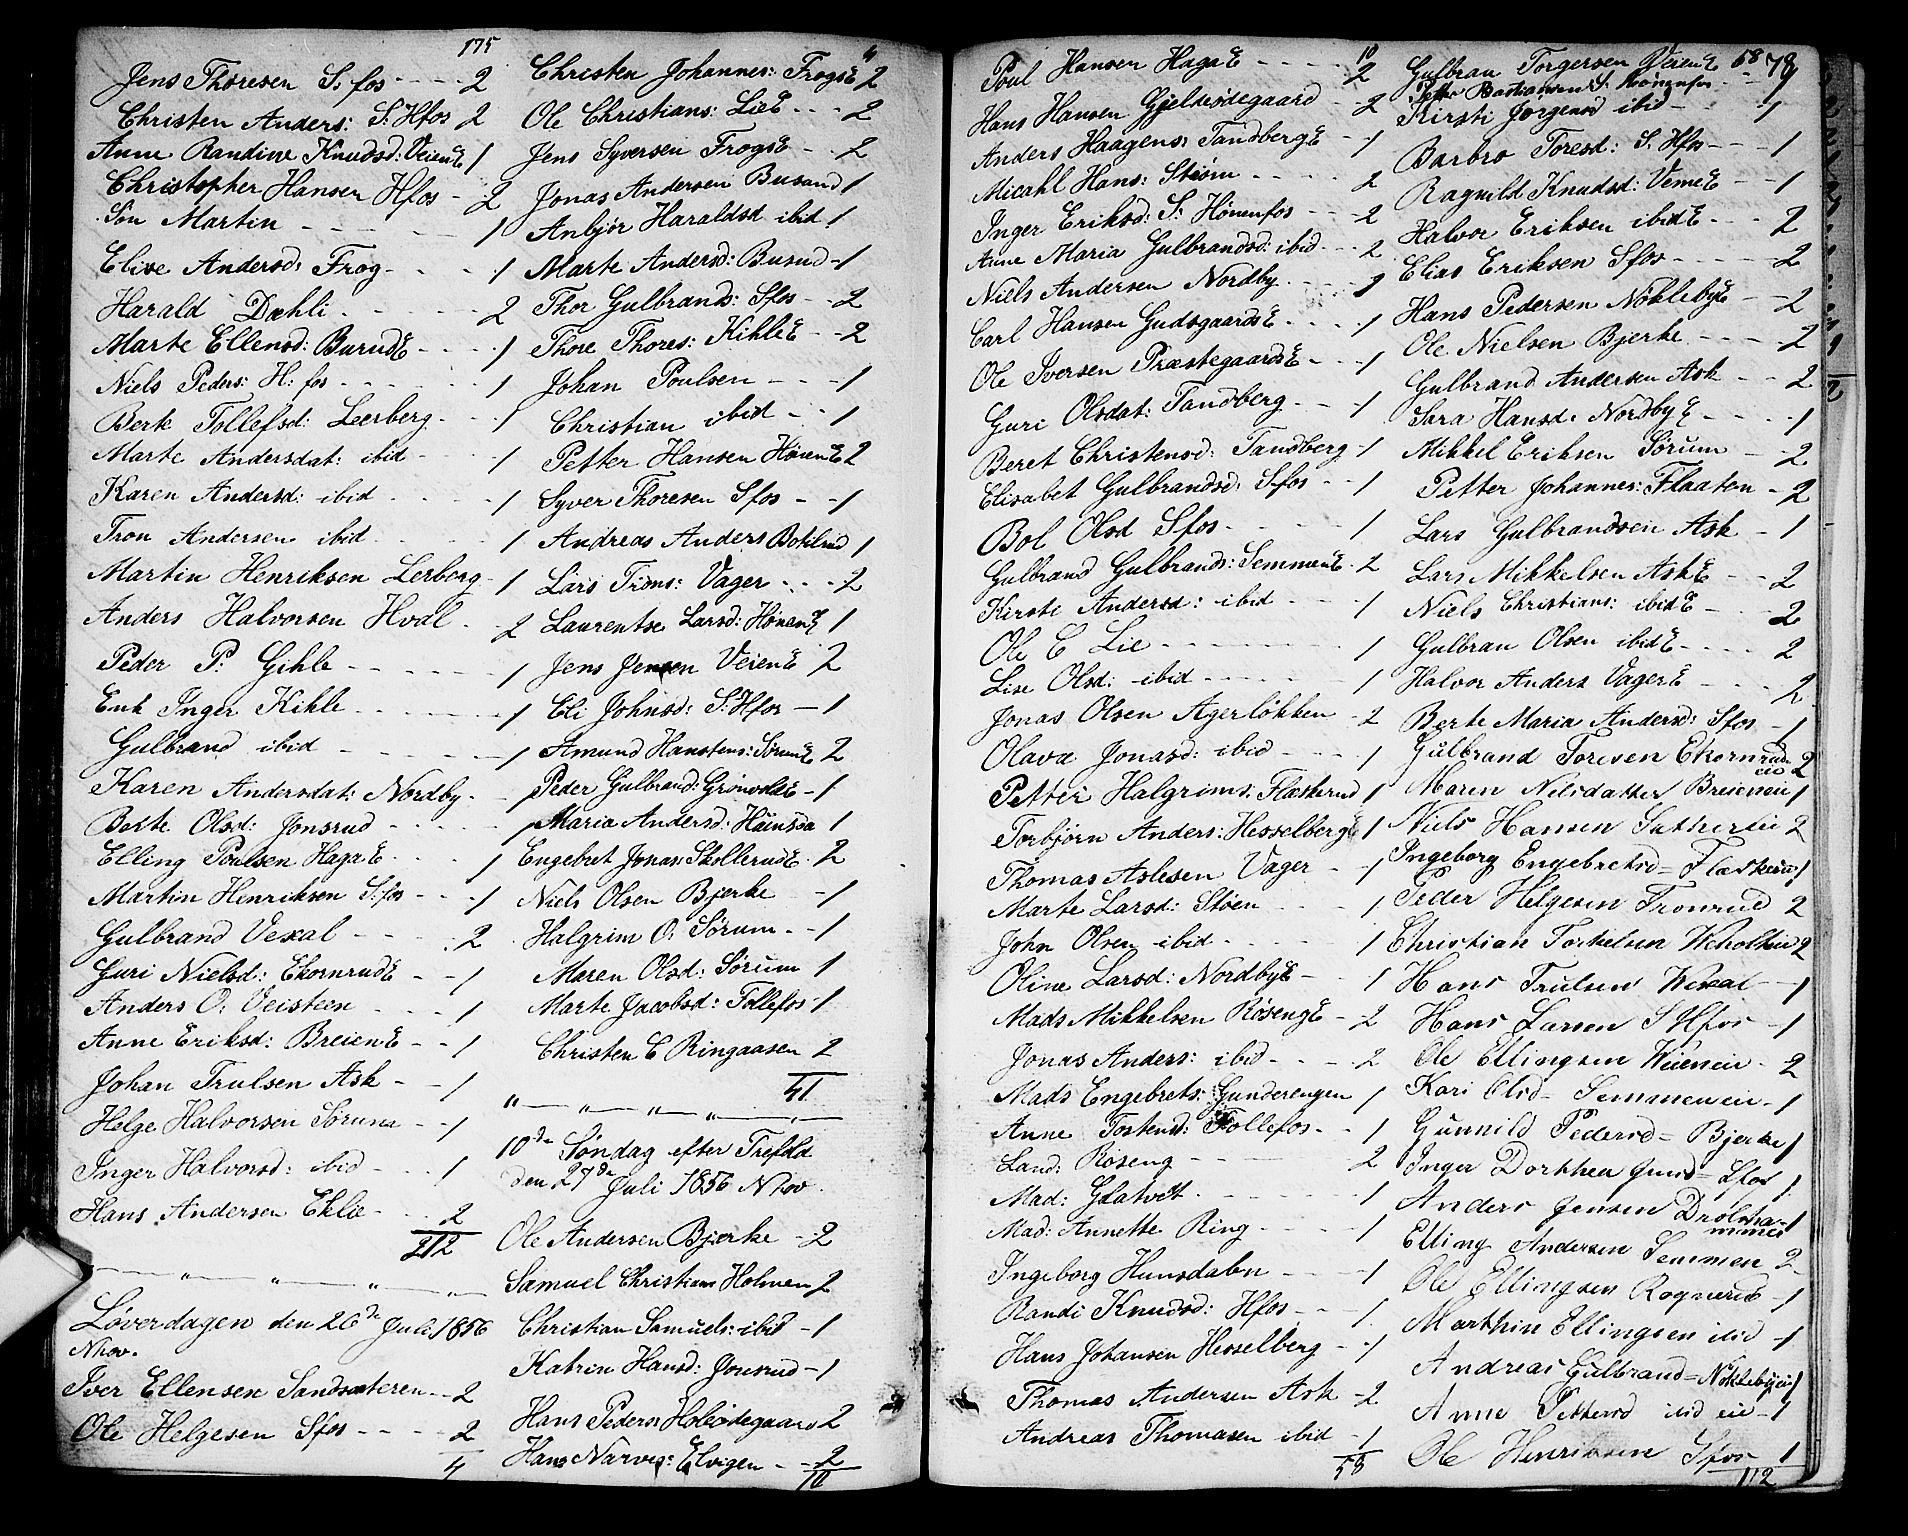 175
Jens Thoresen S: fos - - - - 2
Christen Anders: S: Hfos 2
Anne Randine Knudsd: VeienE 1
Christopher Hansen Hfos - 2
Søn Martin - - - - - 1
Elise Andersd: Frog - - - - 1
Harald Dæhli - - - - - 2
Marte Ellensd: BurudE - - - - 1
Niels Peders: H: fos - - - - - 1
Berte Tollefsd: Leerberg - - - 1
Marte Andersdat: ibid - - - - 1
Karen Andersd: ibid - - - - 1
Tron Andersen ibid - - - - 1
Martin Henriksen Lerberg - 1
Anders Halvorsen Hval - - 2
Peder P: Gihle - - - - - 1
Enk Inger Kihle - - - - - 1
Gulbrand ibid - - - - - 1
Karen Andersdat: Nordby - - 1
Berte Olsd: Jonsrud - - - - - 1
Elling Poulsen HagaE - - - - 1
Martin Henriksen S: fos - - - - 1
Gulbrand Vexal - - - - - 2
Guri Nielsd: EkornrudE - - 1
Anders O: Veisteen - - - - 1
Anne Eriksd: BreienE - - 1
Johan Trulsen Ask - - 1
Helge Halvorsen Sørum - - 1
Inger Halvorsd: ibid - - - 1
Hans Andersen Eklie - - - 2
212
Løverdagen den 26de Juli 1856
Nhov.
Iver Ellensen Sandsæteren - - 2
Ole Helgesen Sfos - - - - 2
4
4
Christen Johannes: FrogsE 2
Ole Christians: LieE - - - 2
Jens Syversen FrogsE - - 2
Jonas Andersen Busund 1
Anbjør Haraldsd ibid 1
Marte Andersd: Busud - 1
Thor Gulbrands: Sfos - - 2
Thore Thores: KihleE - - 2
Johan Poulsen - - - 1
Christian ibid - - 1
Petter Hansen HønenE 2
Syver Thoresen Sfos - - 1
Andreas Anders Botilrud 1
Lars Trons: Vager - - - 2
Laurentse Larsd: HønenE 1
Jens Jensen VeienE 2
Eli Johnsd: S: Hfos - 1
Amund Hanstens: SørumE 2
Peder Gulbrand: GrønvoldE - 1
Maria Andersd: Hunsda 1
Engebret Jonas: SkollerudE - 2
Niels Olsen Bjerke - 1
Halgrim O: Sørum - - 1
Maren Olsd: Sørum 1
Marte Jacobsd: Follefos - 1
Christen C Ringaasen 2
51
10de Søndag efter Trefdd
den 27de Juli 1856 Nhov.
Ole Andersen Bjerke - 2
Samuel Christians Holmen 2
Christian Samuels: ibid - 1
Katrin Hansd: Jonsrud - 1
Hans Peders Holeødegaard 2
Hans Narves: Elvigen - - 2
10
10
Poul Hansen HagaE - - - - 2
Hans Hansen Gjelseødegaard - - 2
Anders Haagens: TandbergE - 1
Micahl Hans: Strøm - - - - 2
Inger Eriksd: S: Hønenfos - - - 2
Anne Maria Gulbrandsd: ibid - - - 2
Niels Andersen Nordby - - - - 2
Carl Hansen GudsgaardsE - - - - 1
Ole Iversen PræstegaardsE - - - 1
Guri Olsdat: Tandberg - - 1
Beret Christensd: Tandberg - 1
Elisabet Gulbrandsd: Sfos - - 1
Bol Olsd Sfos - - - - - 1
Gulbrand Gulbrands: SemmenE - 2
Kirste Andersd: ibid - - - 1
Ole C Lie - - - - - - - 1
Lise Olsd: ibid - - - - - - 1
Jonas Olsen Agerløkken - 2
Olava Jonasd: ibid - - - - 1
Petter Halgrims: Flæskerud 1
Torbjørn Anders: HesselbergE 1
Thomas Aslesen Vager - - 1
Marte Larsd: Støen - - - - 1
John Olsen ibid - - - - - 1
Oline Larsd: NordbyE - - - 1
Mads Mikkelsen RøsengE - 2
Jonas Anders: ibid - - - - 2
Mads Engebrets: Gunderengen 1
Anne Tostensd: Follefos - - 1
Land: Røseng - - - - - - 2
Mad: Glatvet - - - - - - - 1
Mad: Annette Ring - - - - 1
Ingeborg Hunsdalen - - - - 1
Randi Knudsd: Hfos - - - 1
Hans Johansen Hesselberg - - 1
Thomas Andersen Ask - 2
Andreas Thomasen ibid - 1
58
58 78
Gulbran Torgersen VeienE - - 1
Petter Bastiansen S. Hønenfos
Kirsti Jørgensd ibid - - - - 1
Barbro Toresd: S: Hfos - - - 1
Ragnild Knudsd: VemeE - - 1
Halvor Eriksen ibidE - - - 2
Elias Eriksen Sfos - - - - - 2
Hans Pedersen NøklebyE - - 2
Ole Nielsen Bjerke - - - - 2
Gulbrand Andersen Ask - - 2
Sara Hansd: NordbyE - - - - 1
Mikkel Eriksen Sørum - - 2
Petter Johannes: Flaaten - 2
Lars Gulbrandsen Ask - 1
Lars Mikkelsen AskE - - 2
Niels Christians: ibidE - - - 2
Gulbran Olsen ibidE - - - - 2
Halvor Anders VagerE - - - - 2
Berte Maria Andersd: Sfos - 1
Gulbrand Toresen Ekornrud
eie 2
Maren Nilsdatter Breieneie 1
Niels Hansen Sathereie 2
Ingeborg Engebretsd= Flæskerud 1
Peder Helgesen Tronrud 2
Christian Torkelsen Weholteie 2
Hans Trulsen Wexal - - 1
Hans Larsen S Hfos - 1
Ole Ellingsen Weieneie - 2
Kari Olsd= Semmeneie - 1
Gunnild Pedersd= Bjerke 1
Inger Dorthea Gunsd= Sfos 1
Anders Jensen Drolsha-
mmer 1
Elling Andersen Semmen 2
Ole Ellingsen Rognerud - 1
Marthin Ellingsen ibid - 1
Andreas Gulbrand= Nøklebyeie 1
Anne Pettersd ibid eie - 1
Ole Henriksen Sfos 1
112